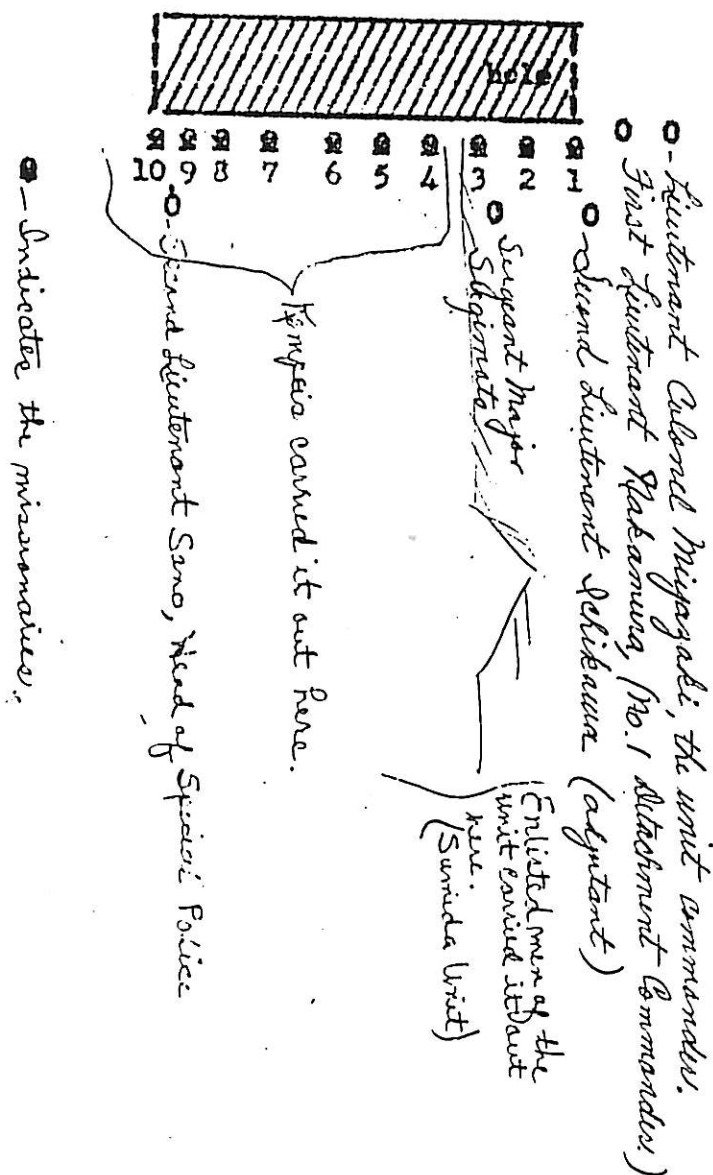 hole
1
2
3
4
5
6
7
8
9
10
O - Lieutenant Colonel Miyazaki, the unit commander.
O First Lieutenant Nakamura, (No. 1 Detachment Commander.)
O - Second Lieutenant Ichikawa (adjutant)
O Sergeant Major
Sugimoto
Enlisted men of the
unit carried it out
here.
(Sumida Unit)
Kempeis carried it out here.
O - Second Lieutenant Sano, Head of Special Police
- Indicates the missionaries.